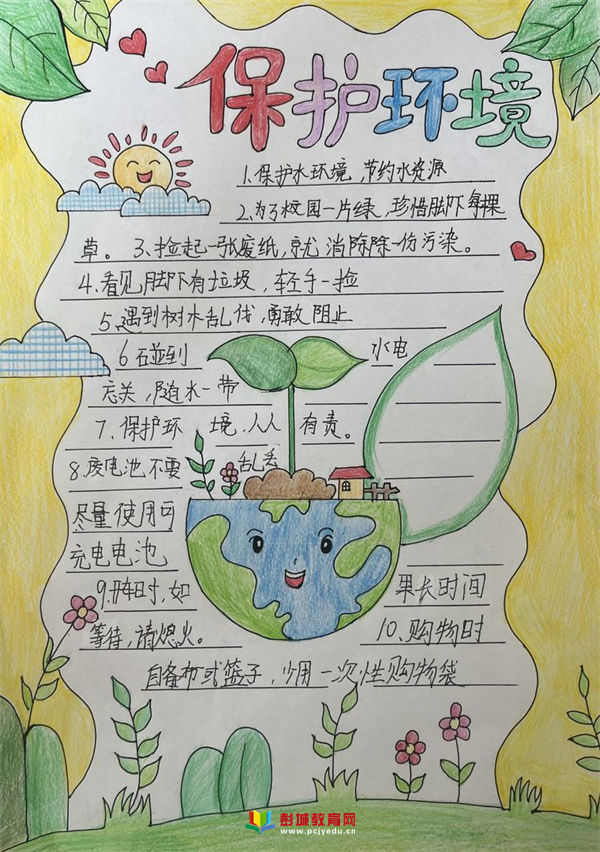 保护环境
1.保护水环境,节约水资源
2.为了校园一片绿,珍惜脚下每棵
草。3.捡起一张废纸,就消除除一份污染。
4.看见脚下有垃圾,轻手一捡
5.遇到树木乱伐,勇敢阻止
6碰到 水电
忘关,随水一带
7.保护环境.人人有责。
8.废电池不要乱丢
尽量使用可
充电电池
9.开车时,如果长时间
等待,请熄火。10.购物时
自备布或篮子,少用一次性购物袋
彭城教育网
www.pcjyedu.cn